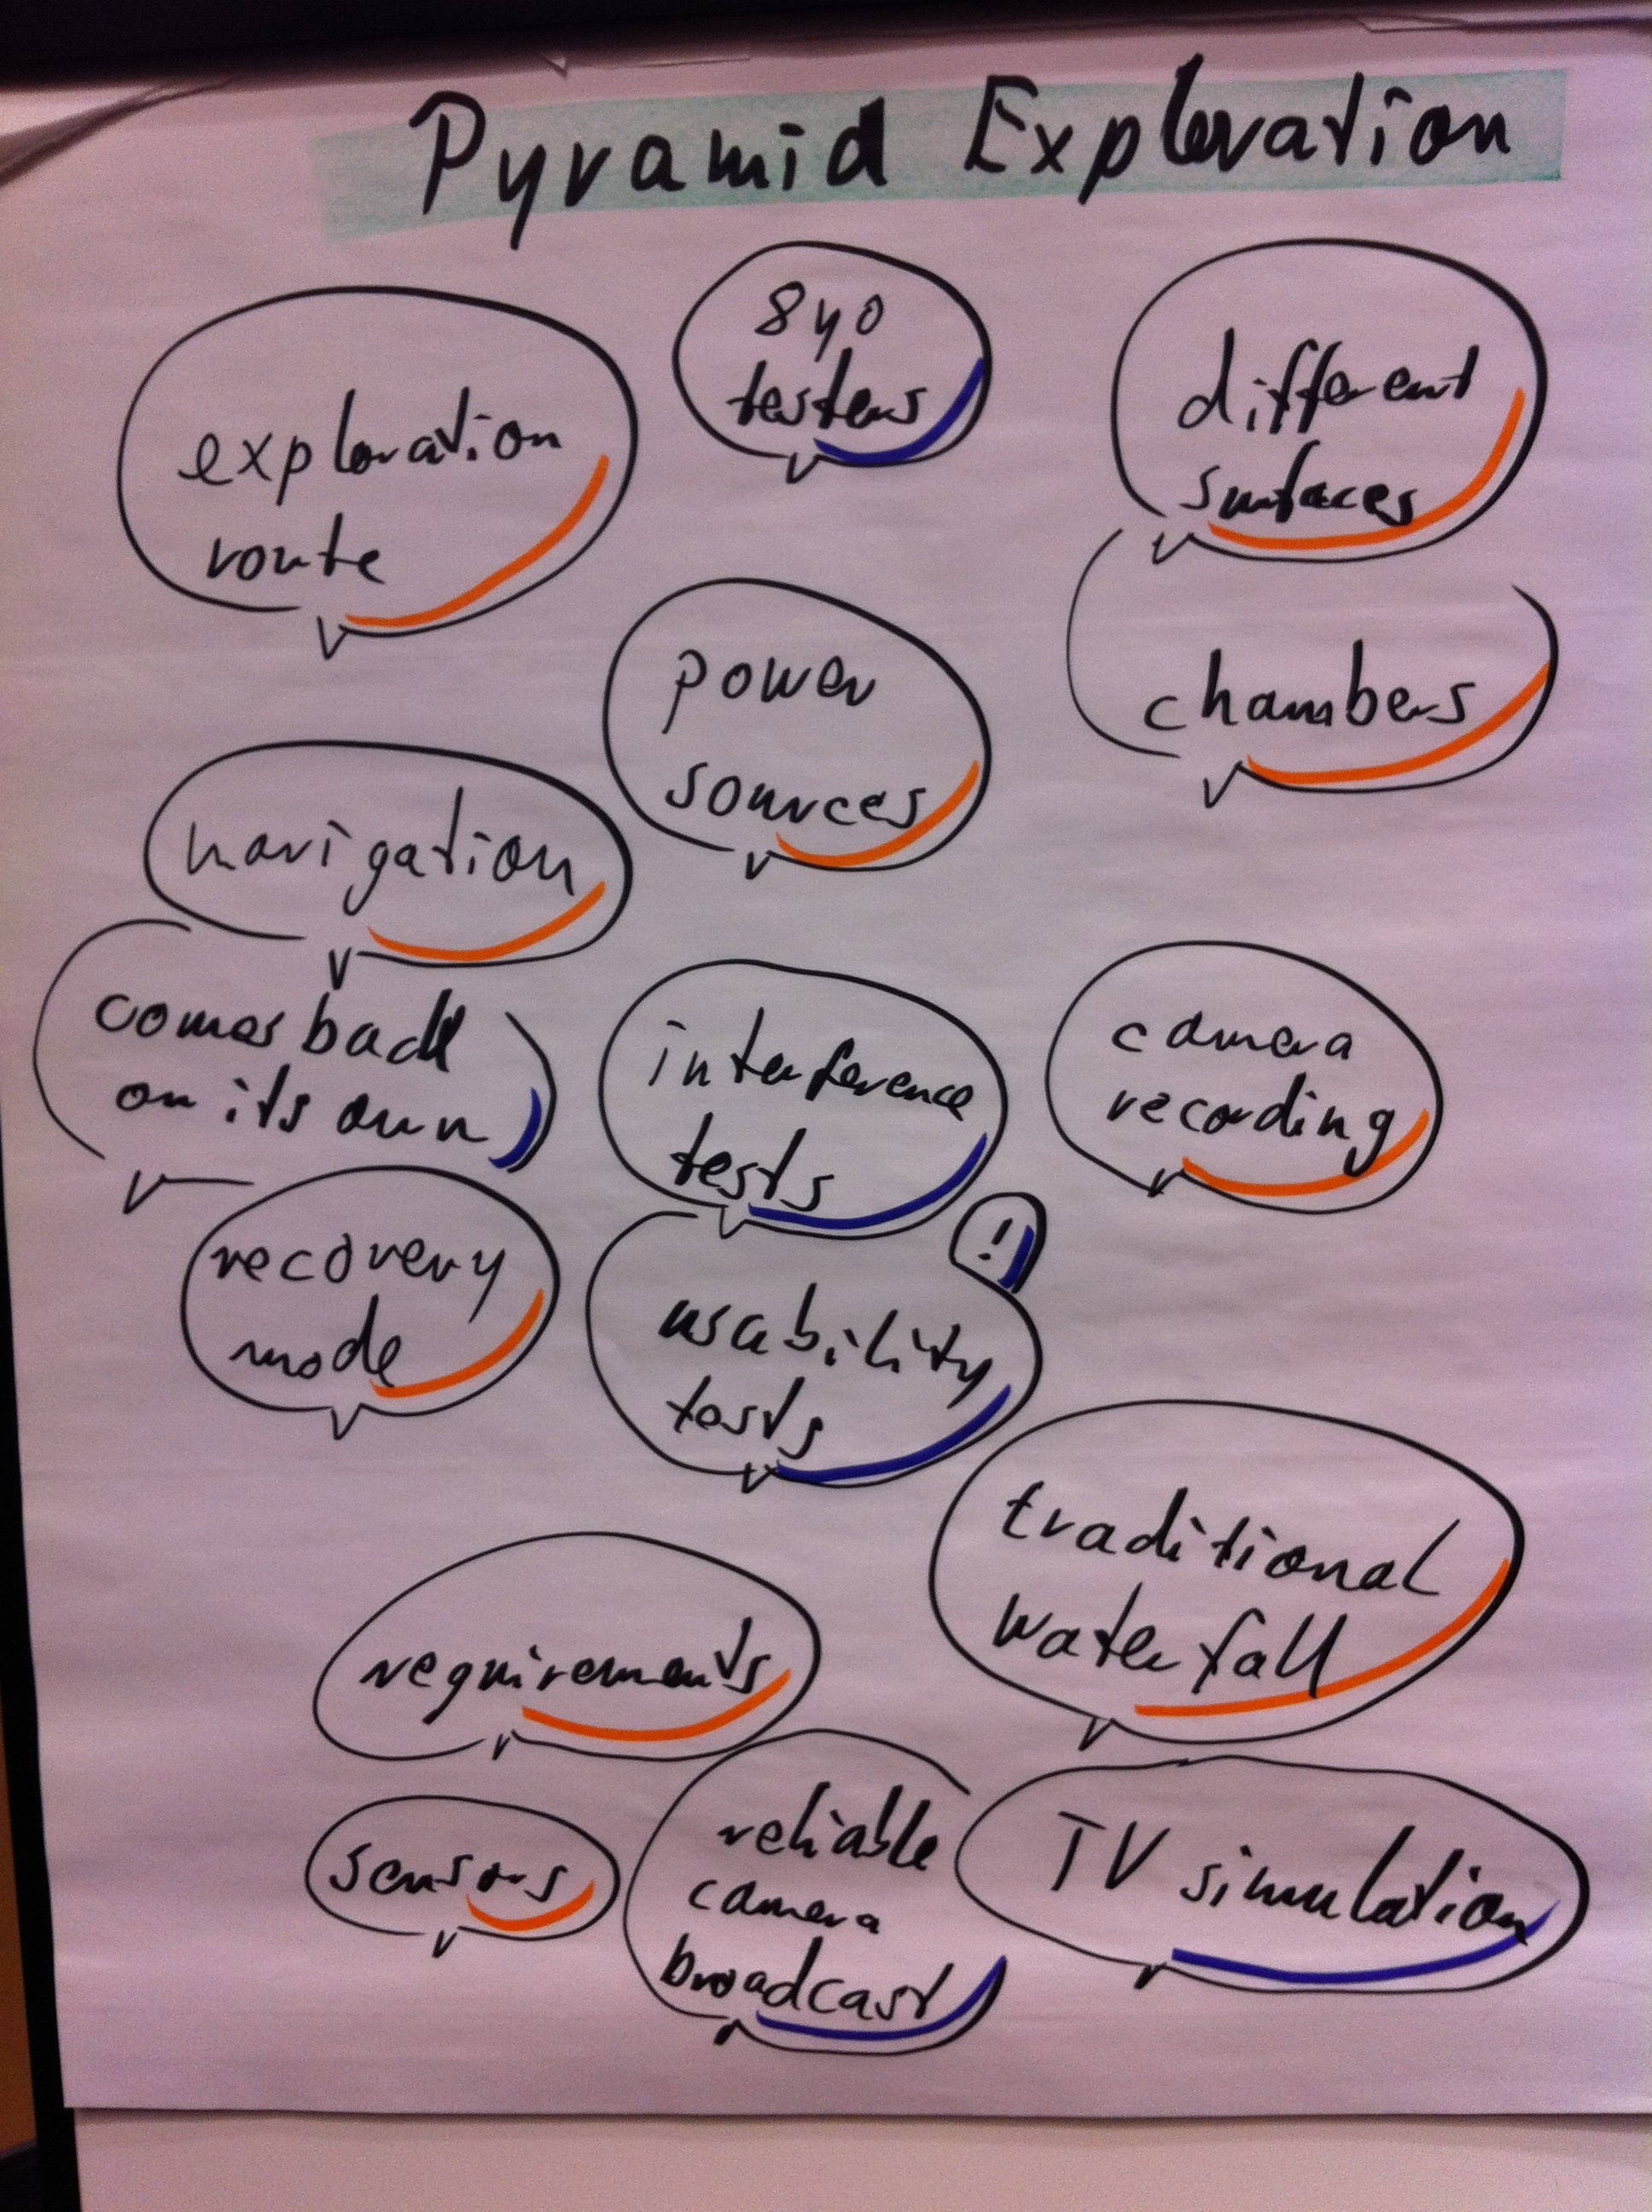 Pyramid Exploration
8yo
testers
exploration
route
different
surfaces
power
sources
chambers
navigation
comes back
on its own
interference
tests
camera
recording
!
recovery
mode
usability
tests
traditional
waterfall
requirements
sensors
reliable
camera
broadcast
TV simulation